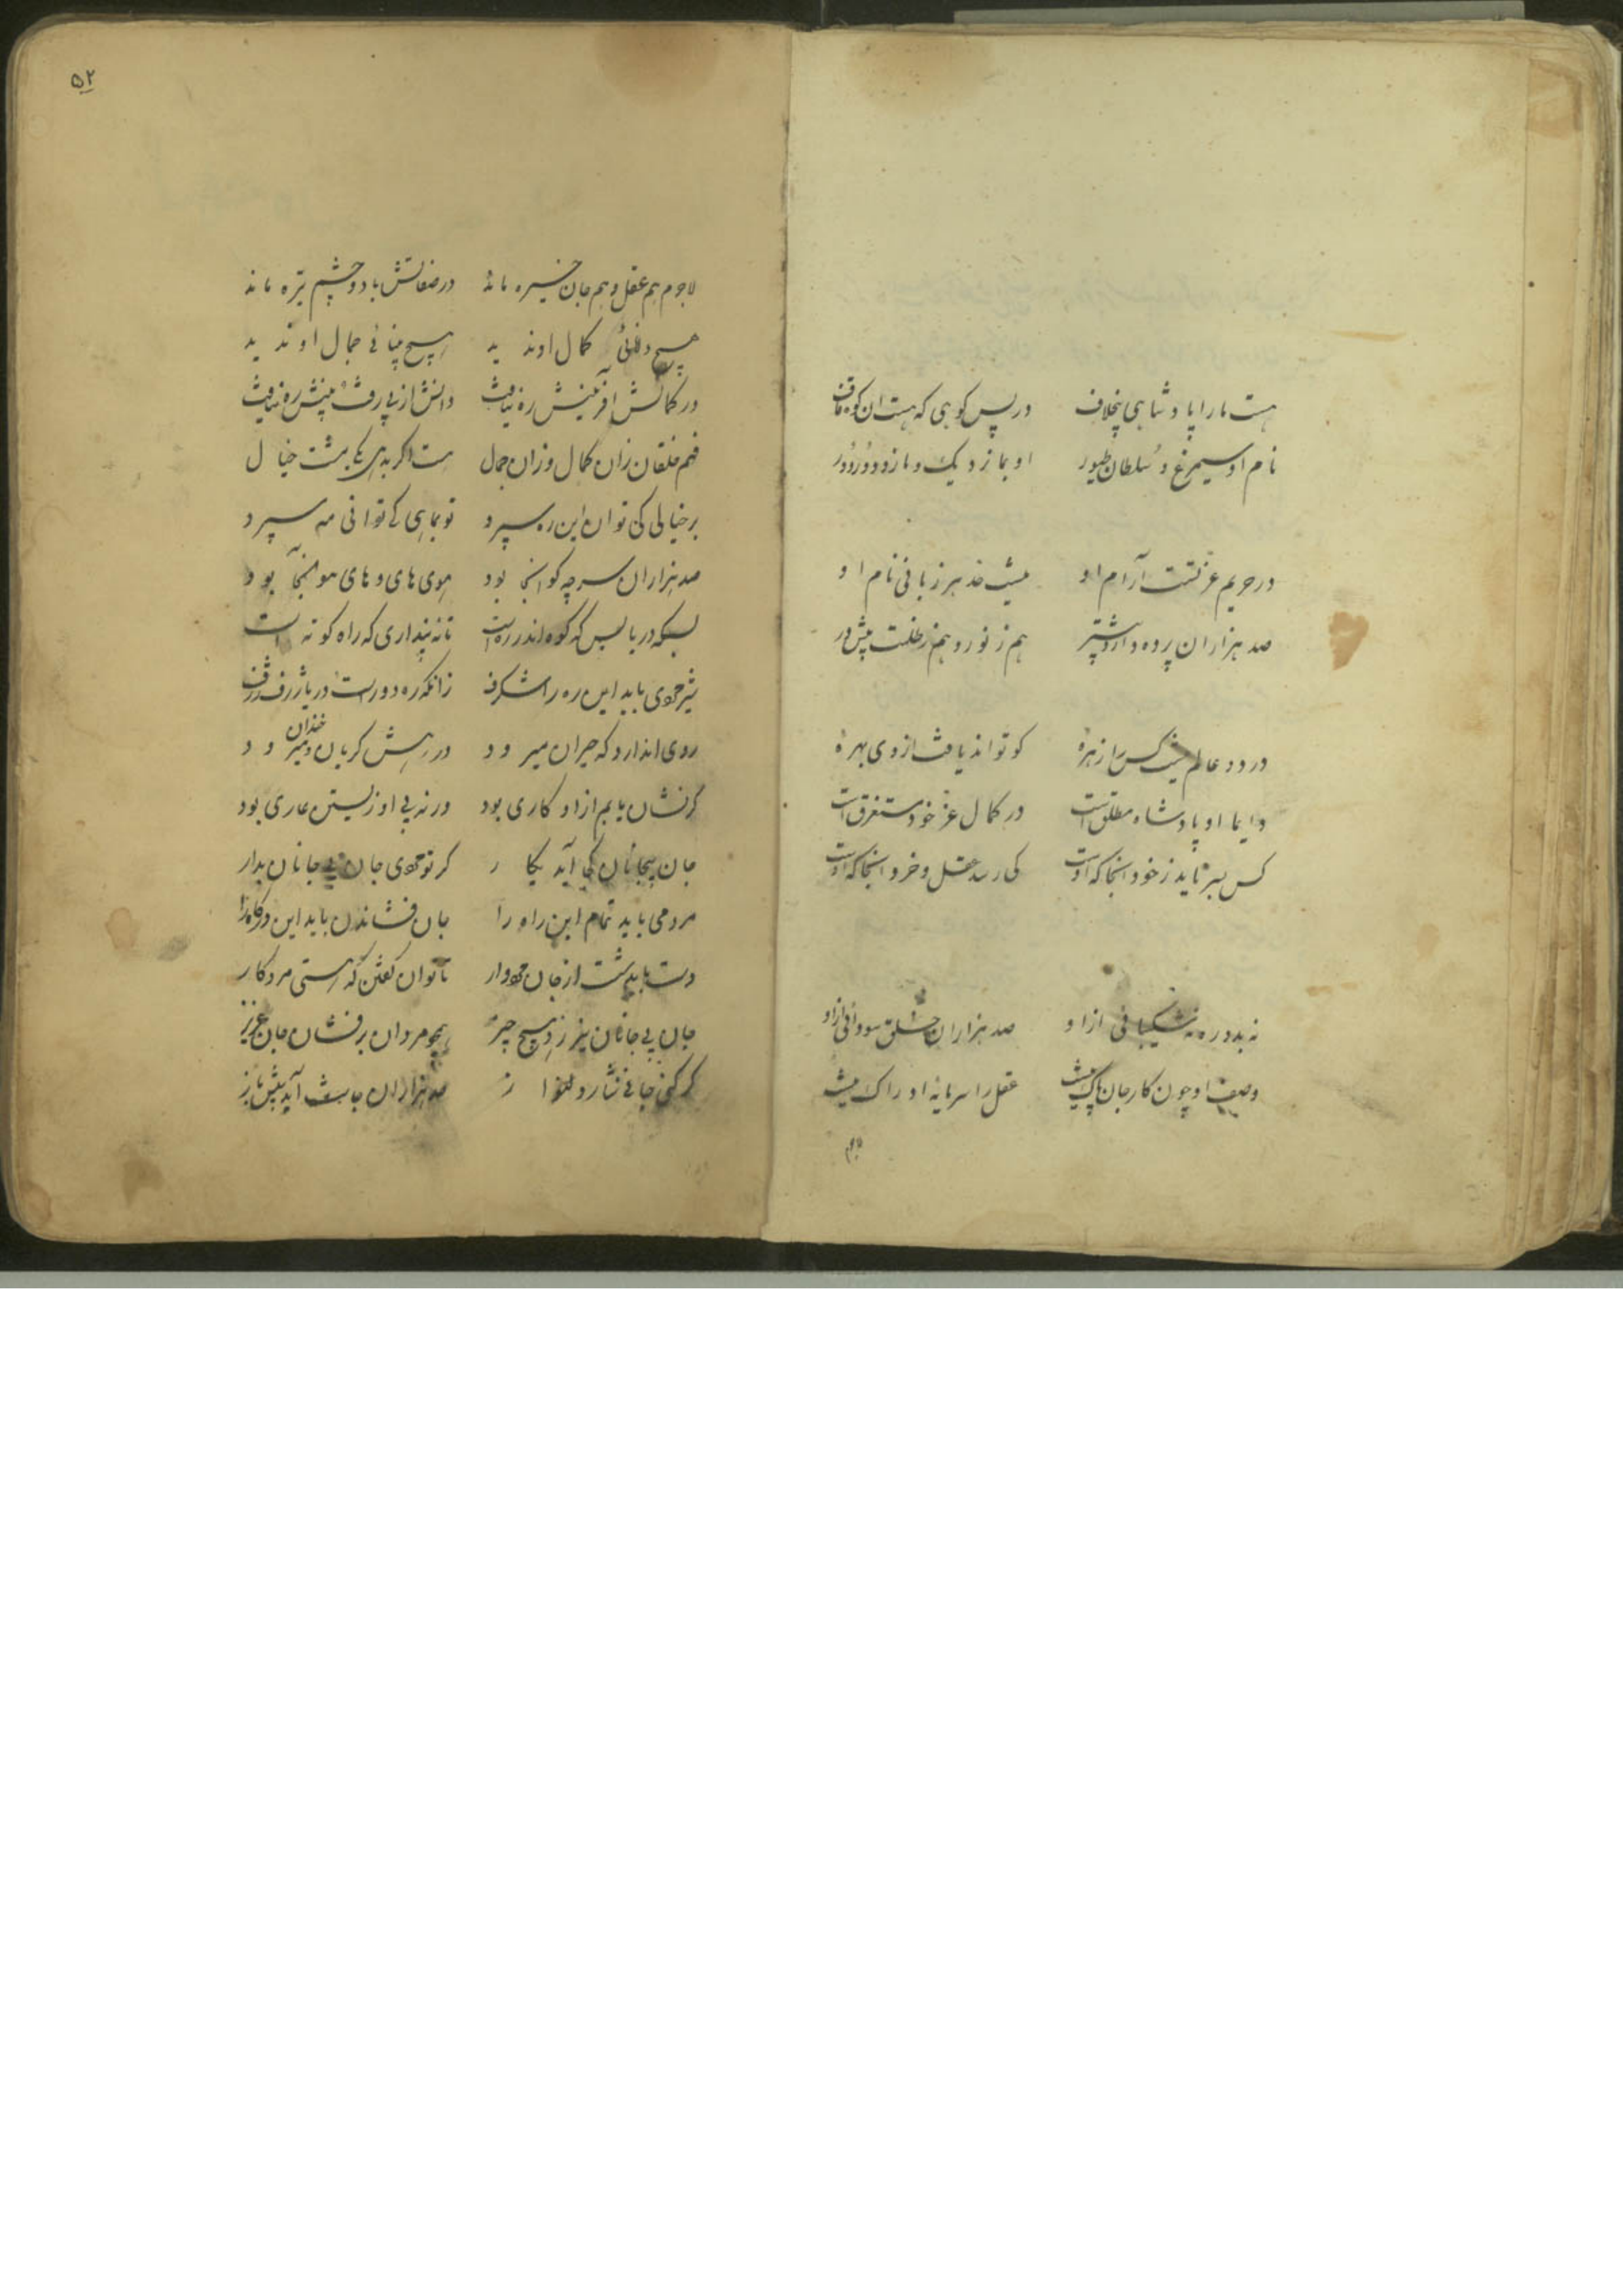 هست ما را پادشاهی بیخلاف در پس کوهی که هست ان کوه قاف
نام او سیمرغ و سلطان طیور او بما نزدیک و ما زو دور دور
در حریم عزتست آرام او نیست حد هر زبانی نام او
صد هزاران پرده دارد بیشتر هم ز نور و هم ز ظلمت پیش در
در دو عالم نیست کس را زهرهٔ کو تواند یافت از وی بهرهٔ
دایما او پادشاه مطلق است در کمال عز خود مستغرق است
کس بسر ناید ز خود انجا که اوست کی رسد عقل و خرد انجا که اوست
نه بدو ره نه شکیبائی از او صد هزاران خلق سودائی از او
وصف او چون کار جان پاک نیست عقل را سرمایهٔ ادراک نیست
لاجرم
۵۲
لاجرم هم عقل و هم جان خیره ماند در صفاتش با دو چشم تیره ماند
هیچ دانائی کمال او ندید هیچ بینائی جمال او ندید
در کمالش آفرینش ره نیافت دانش از پی رفت بینش ره نیافت
قسم خلقان زان کمال و زان جمال هست اگر بر هم نهی مشت خیال
بر خیالی کی توان این ره سپرد تو بماهی کی توانی مه سپرد
صد هزاران سر چو گو انجا بود هوی های و های هو آنجا بود
بسکه دریا بس که کوه اندر ره است تا نه پنداری که راه کوته است
شیر مردی باید این ره را شگرف زانکه ره دورست دریا ژرف ژرف
روی اندارد که حیران میرود در رهش گریان و خندان میرود
گر نشان یابیم از او کاری بود ورنه بی او زیستن عاری بود
جان بیجانان کجا آید بکار گر تو مردی جان بی جانان مدار
مرد می باید تمام این راه را جان فشاندن باید این درگاه را
دست باید شست از جان مردوار تا توان گفتن که هستی مرد کار
جان بی جانان نیرزد هیچ چیز همچو مردان برفشان جان عزیز
گر کنی جانی نثار دلنواز صد هزاران جانت آید پیش باز